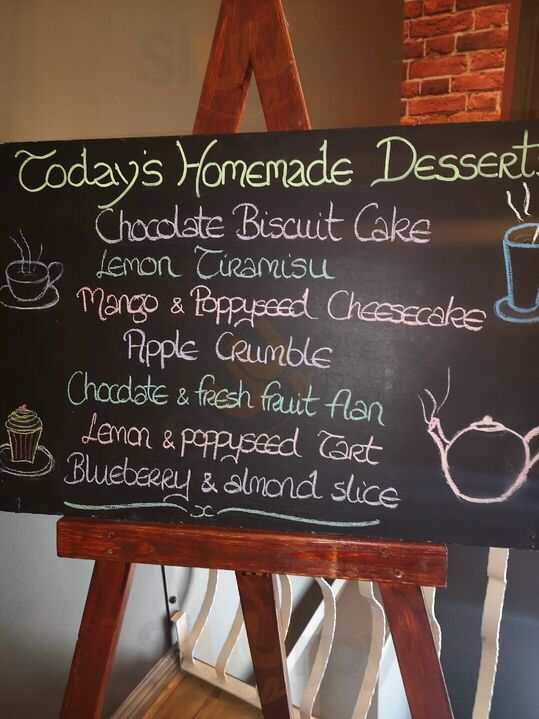 Today's Homemade Desserts
Chocolate Biscuit Cake
Lemon Tiramisu
Mango & Poppyseed Cheesecake
Apple Crumble
Chocolate & fresh fruit flan
Lemon & poppyseed Tart
Blueberry & almond slice